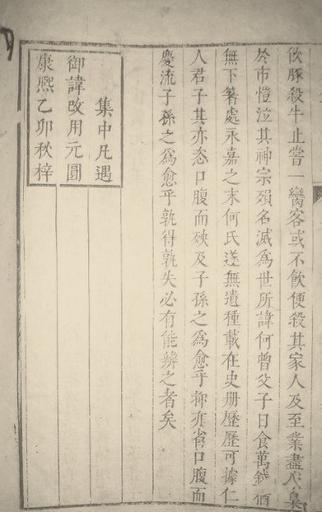 飲豚殺牛止嘗一臠客或不飲便殺其家人及至業盡
於市愷泣其神宗殞名滅為世所諱何曾父子日食萬錢猶
無下箸處永嘉之末何氏遂無遺種載在史册歷歷可據仁
人君子其亦忞口腹而殃及子孫之為愈乎抑亦省口腹而
慶流子孫之為愈乎孰得孰失必有能辨之者矣
集中凡遇
御諱改用元圓
康熙乙卯秋梓